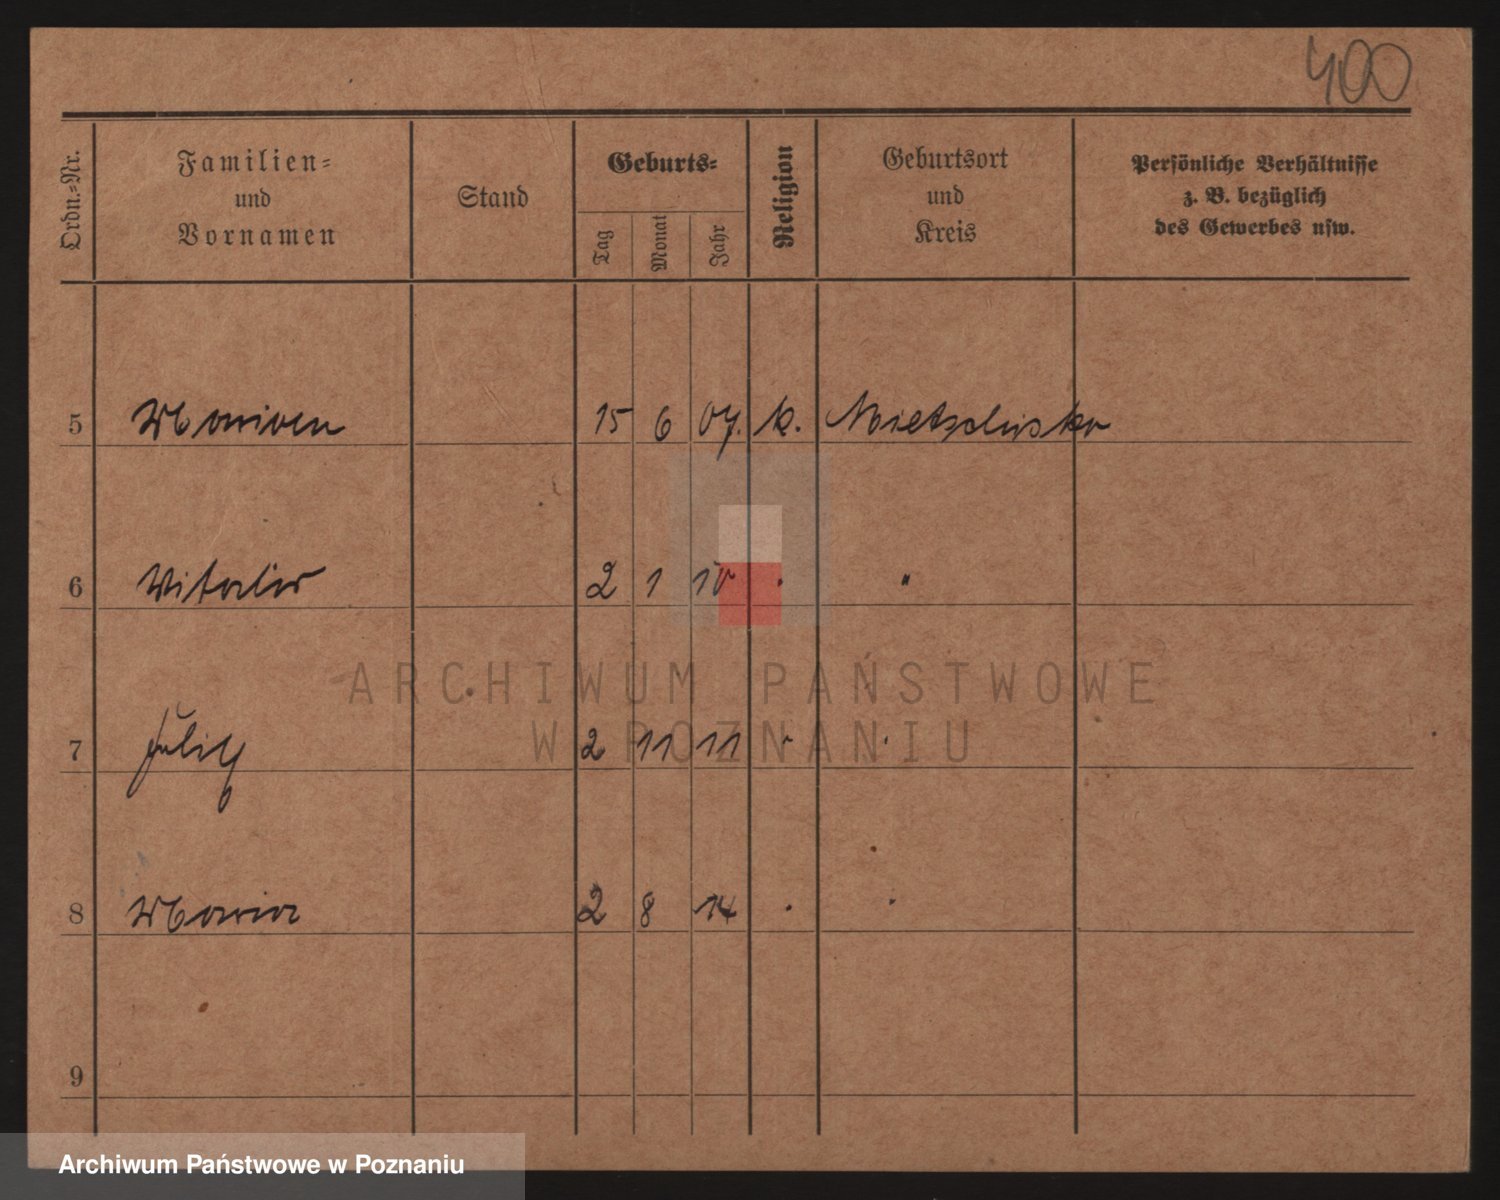 400
Ordn.=Nr.
Familien=
und
Vornamen
Stand
Geburts=
Tag
Monat
Jahr
Religion
Geburtsort
und
Kreis
Persönliche Verhältnisse
z. B. bezüglich
des Gewerbes usw.
5 Marian 15 6 07. k.
6 2 1 10 · "
7 2 11 11 · ·
8 Maria 2 8 14 · ·
9
ARCHIWUM PAŃSTWOWE
W POZNANIU
Archiwum Państwowe w Poznaniu